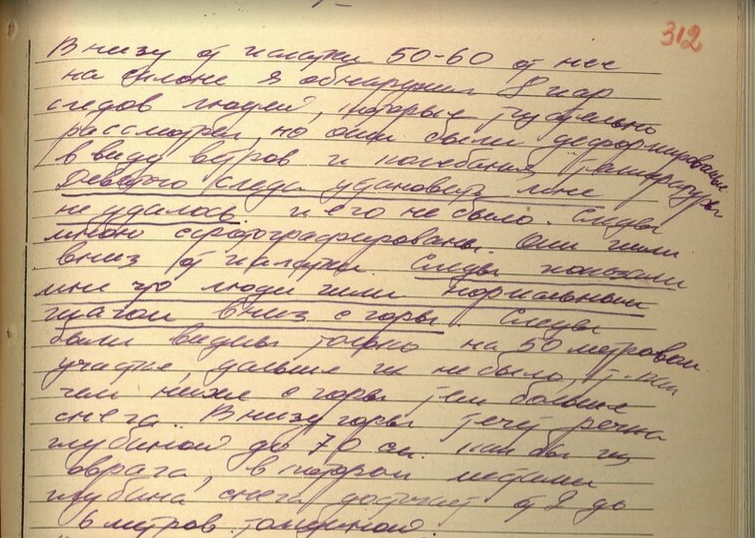 312
В низу от палатки 50-60 от нее
на склоне я обнаружил 8 пар
следов людей, которые тщательно
рассмотрел, но они были деформированы
в виду ветров и колебания температуры
Девятого следа установить мне
не удалось. и его не было. Следы
мною сфотографированы. Они шли
вниз от палатки. Следы показали
мне что люди шли нормальным
шагом вниз с горы. Следы
были видны только на 50 метровом
участке, дальше их не было, т. как
чем ниже с горы тем больше
снега. В низу горы течет речка
глубиной до 70 см. как бы из
оврага, в котором местами
глубина снега достигает от 2 до
6 метров толщиной.